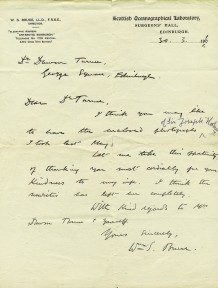 W. S. BRUCE, LL.D., F.R.S.E.
DIRECTOR.
Scottish Oceanographical Laboratory,
SURGEONS' HALL,
EDINBURGH.
30. 3. 
Dr. Dawson Turner,
George Square, Edinburgh.
Dear Dr Turner,
I think you may like
to have the enclosed photograph
of Sir Joseph
I took last May.
Let me take this opportunity
of thanking you most cordially for your
kindness to my wife. I think the
neuritis has left her completely.
With kind regards to Mrs
Dawson Turner & yourself
Yours sincerely,
Wm S. Bruce.